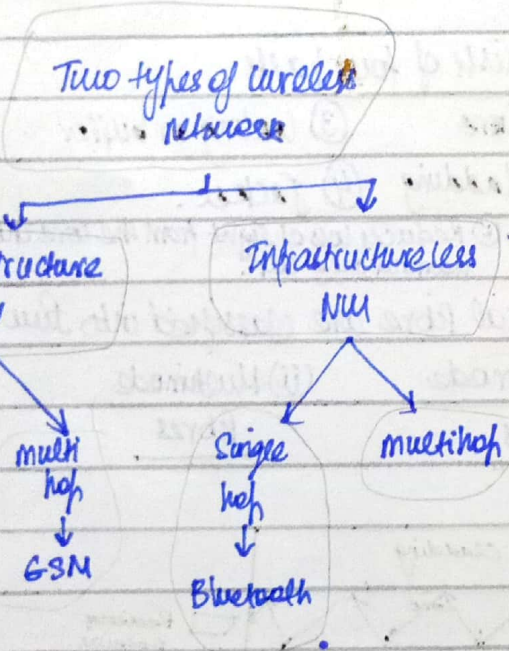 Two types of wireless
Network
ructure
Infrastructureless
NW
multi
hop
GSM
Single
hop
Bluetooth
multihop